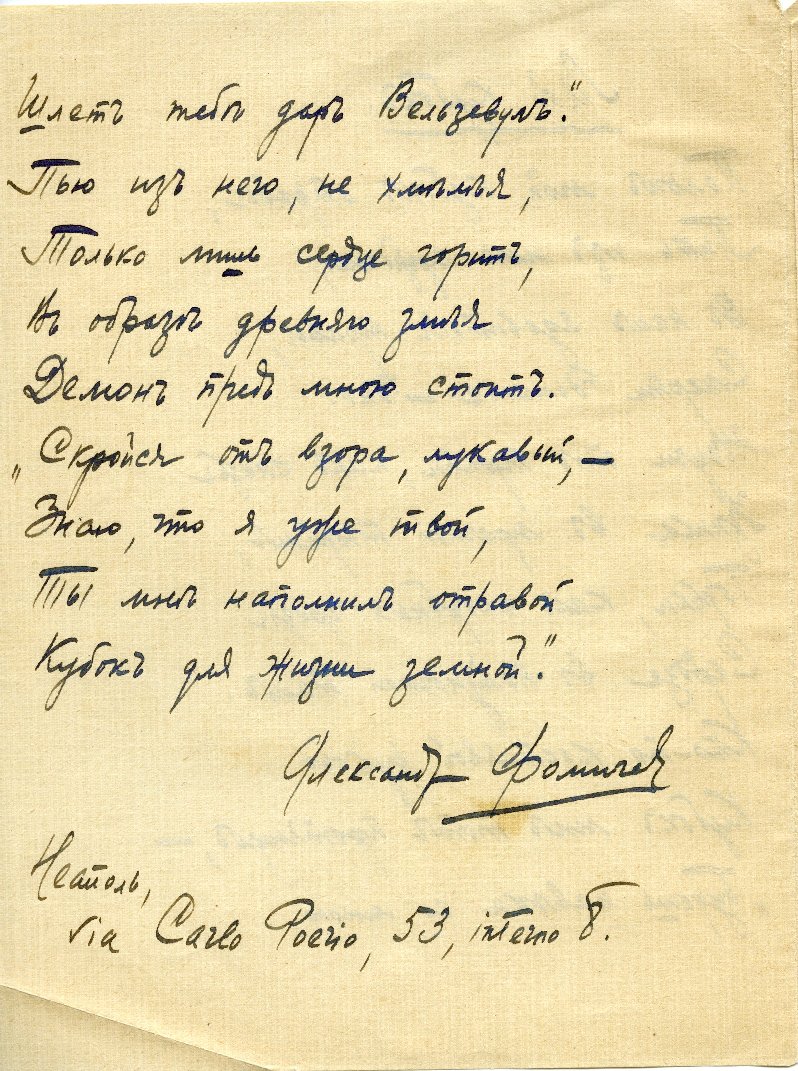 Шлетъ тебѣ даръ Вельзевулъ."
Пью изъ него, не хмѣлѣя,
Только лишь сердце горитъ,
Въ образѣ древняго змѣя
Демонъ предъ мною стоитъ.
„Скройся отъ взора, лукавый, —
Знаю, что я уже твой,
Ты мнѣ наполнилъ отравой
Кубокъ для жизни земной."
Александр Фомичев
Неаполь,
via Carlo Poerio, 53, interno 8.